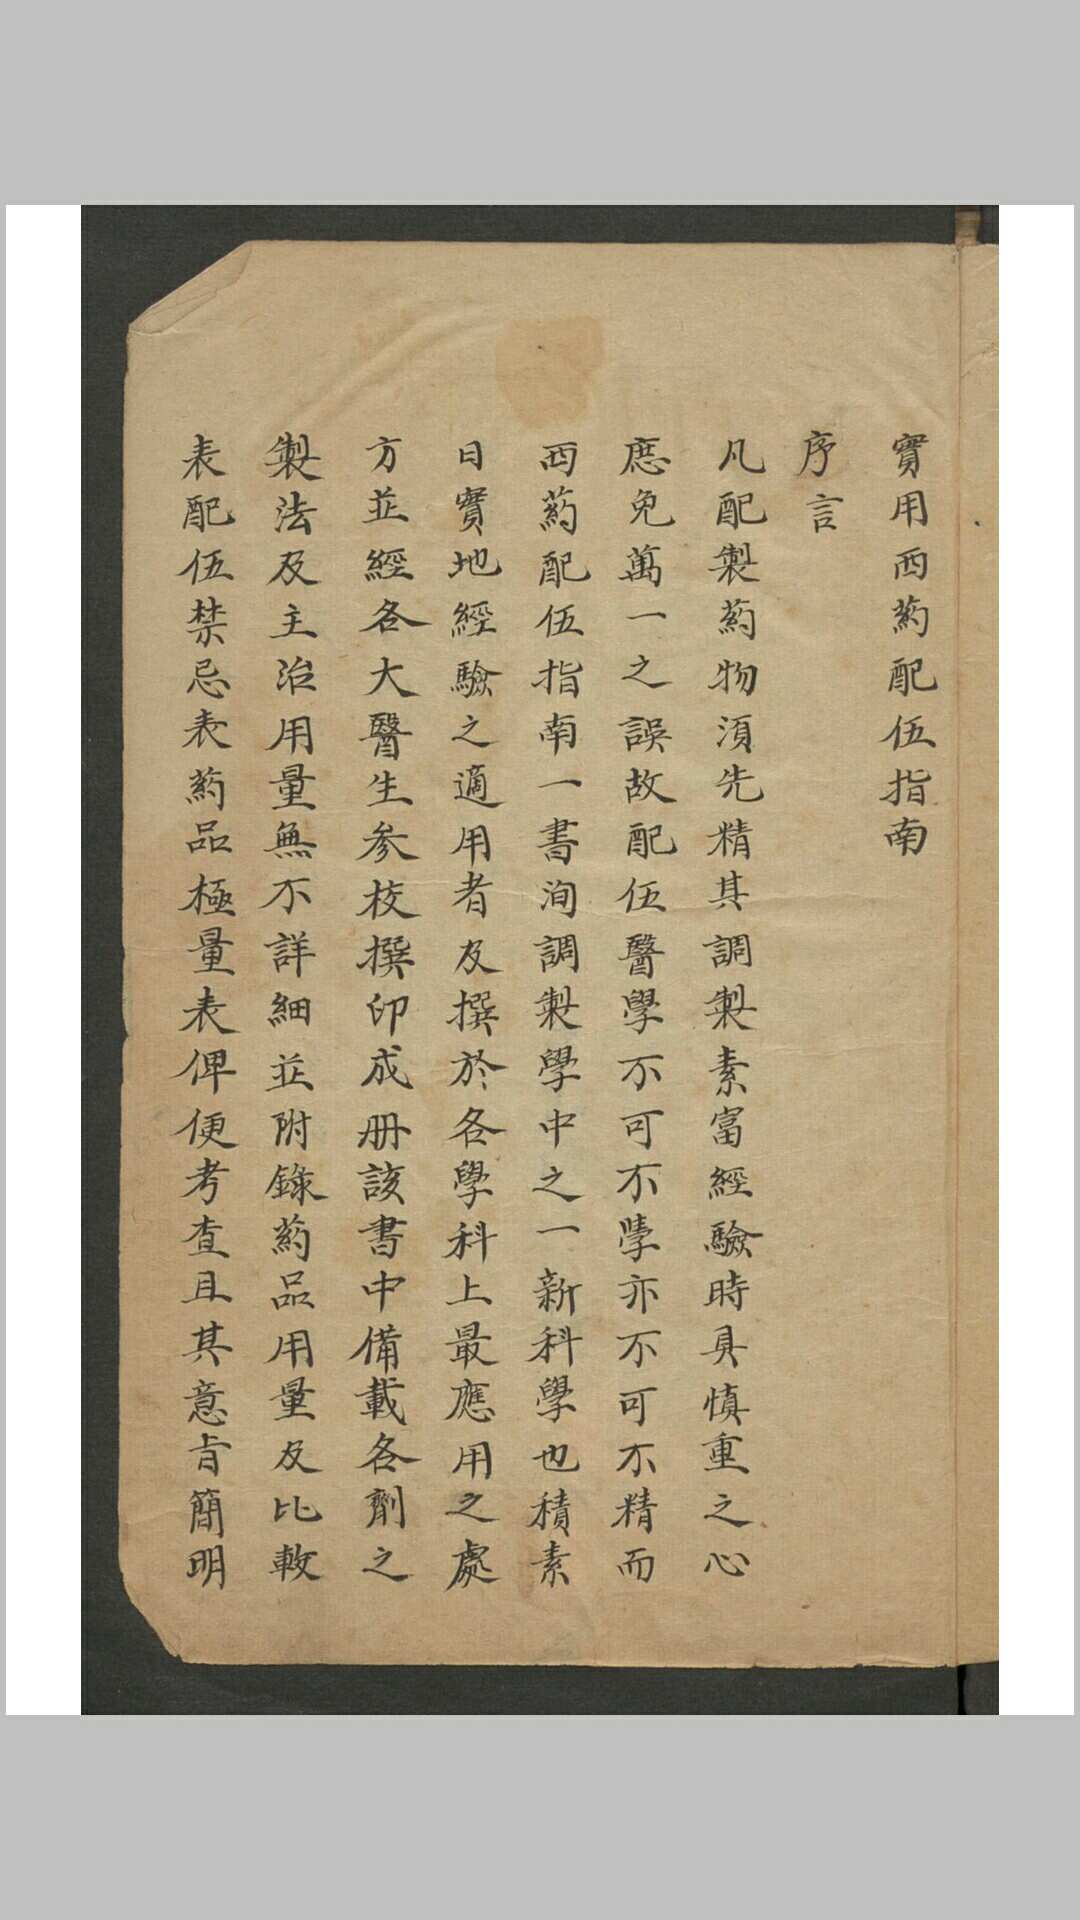 實用西葯配伍指南
序言
凡配製葯物須先精其調製素富經驗時具慎重之心
庶免萬一之誤故配伍醫學不可不學亦不可不精而
西葯配伍指南一書洵調製學中之一新科學也積素
日實地經驗之適用者及撰於各學科上最應用之處
方並經各大醫生参校撰印成册該書中備載各劑之
製法及主治用量無不詳細並附錄葯品用量及比較
表配伍禁忌表葯品極量表俾便考查且其意旨簡明